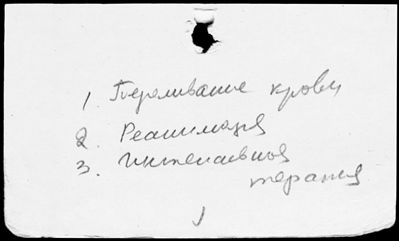 1. Переливание крови
2. Реанимация
3. Интенсивная
терапия